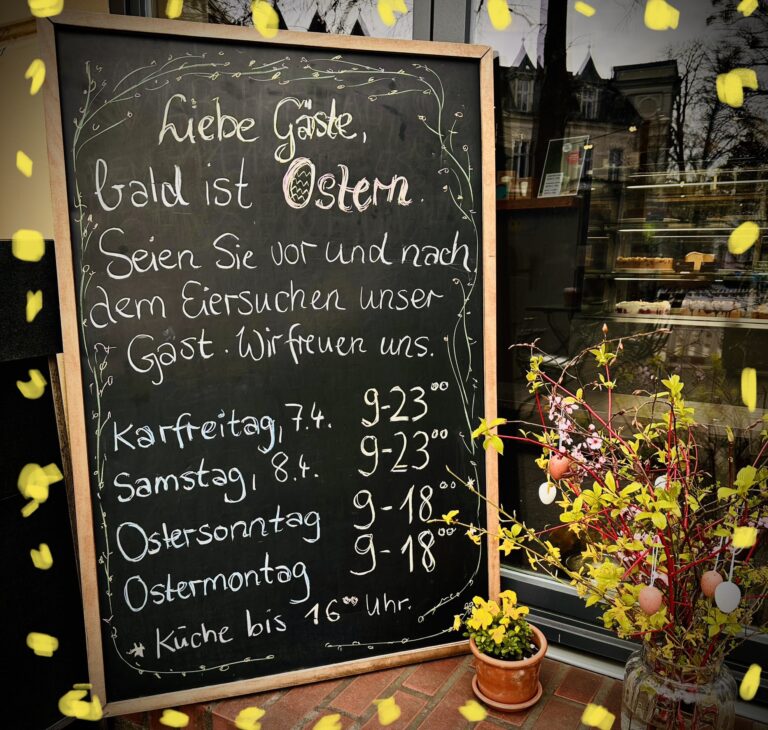 Liebe Gäste,
bald ist Ostern.
Seien Sie vor und nach
dem Eiersuchen unser
Gast. Wir freuen uns.
Karfreitag, 7.4. 9-23⁰⁰
Samstag, 8.4. 9-23⁰⁰
Ostersonntag 9-18⁰⁰*
Ostermontag 9-18⁰⁰
* Küche bis 16⁰⁰ Uhr.